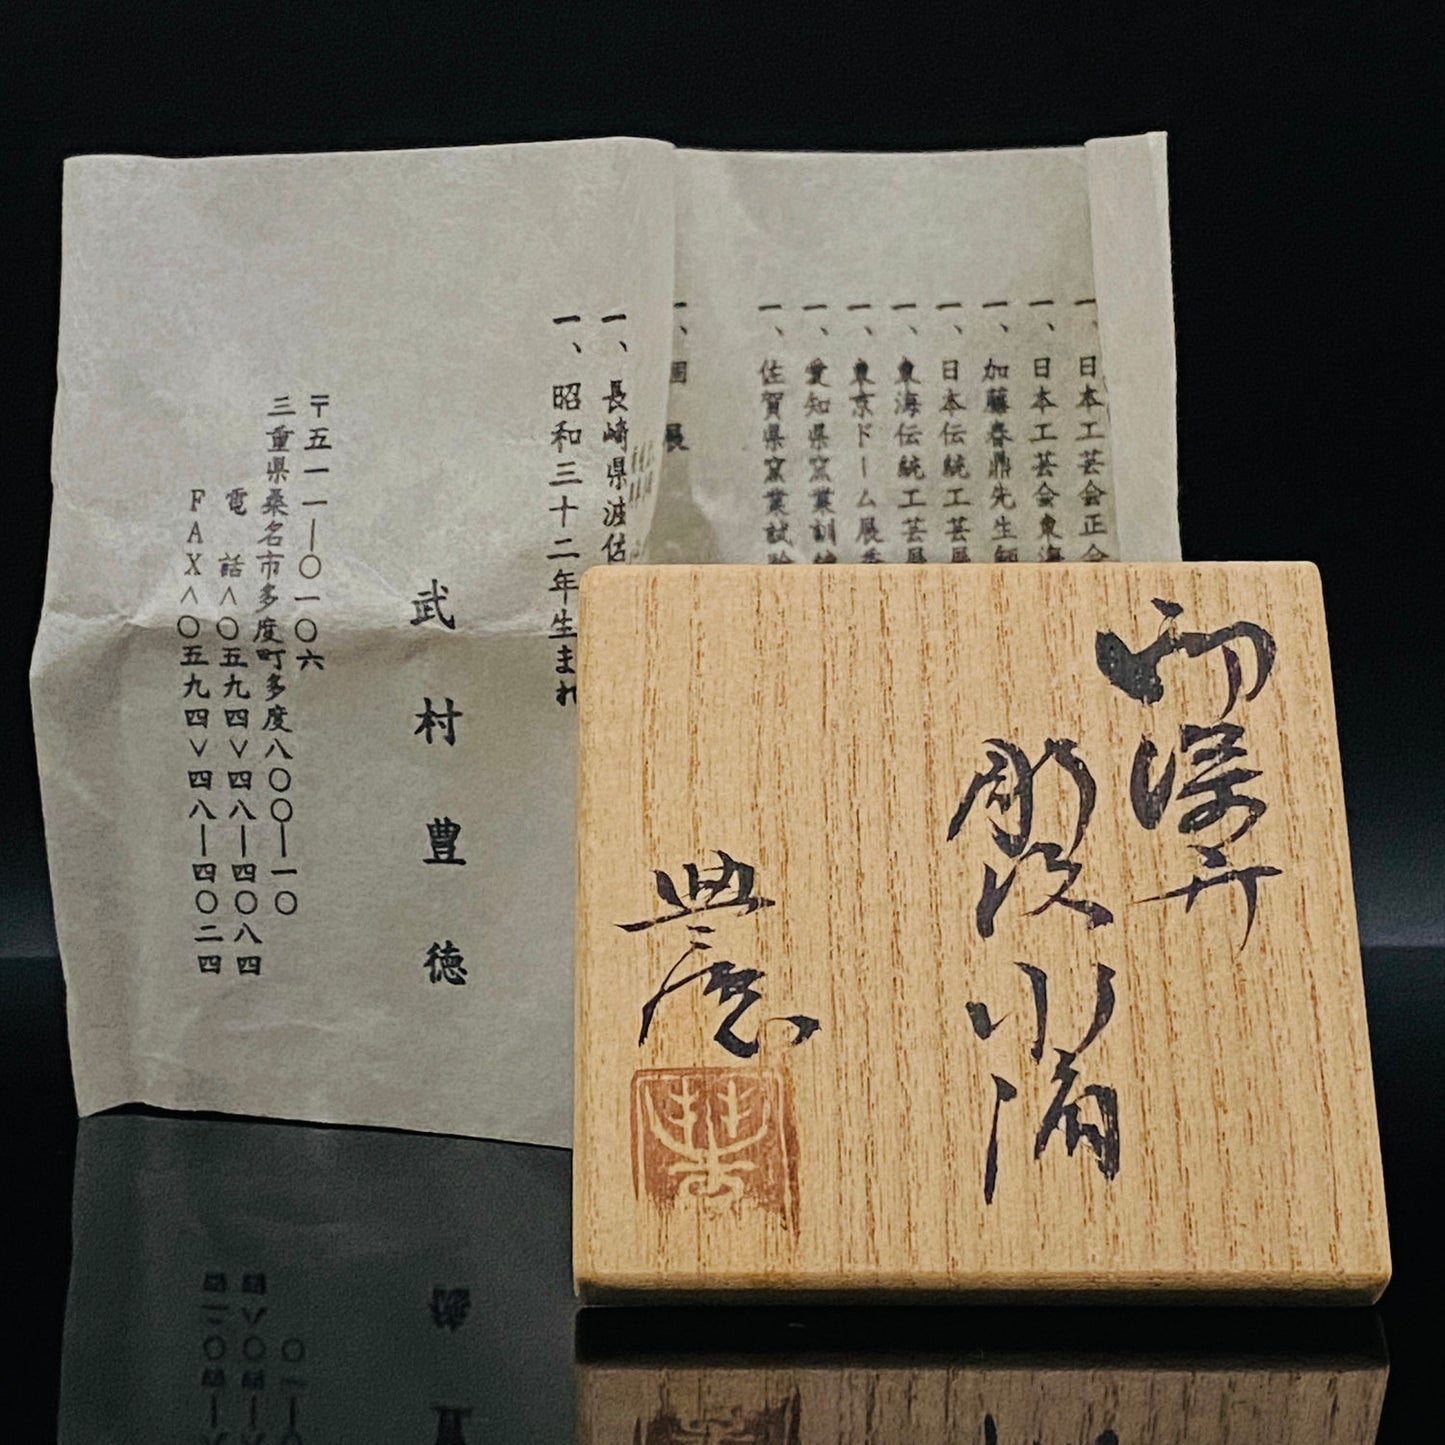 一、日本工芸会正会
一、日本工芸会東海
一、加藤春鼎先生師
一、日本伝統工芸展
一、東海伝統工芸展
一、東京ドーム展
一、愛知県窯業訓練
一、佐賀県窯業試験
一、個展
一、長崎県波佐
一、昭和三十二年生まれ
武村豊徳
〒五一一―〇一〇六
三重県桑名市多度町多度八〇〇―一〇
電話<〇五九四>四八―四〇八四
FAX<〇五九四>四八―四〇二四
彫
小
豊徳